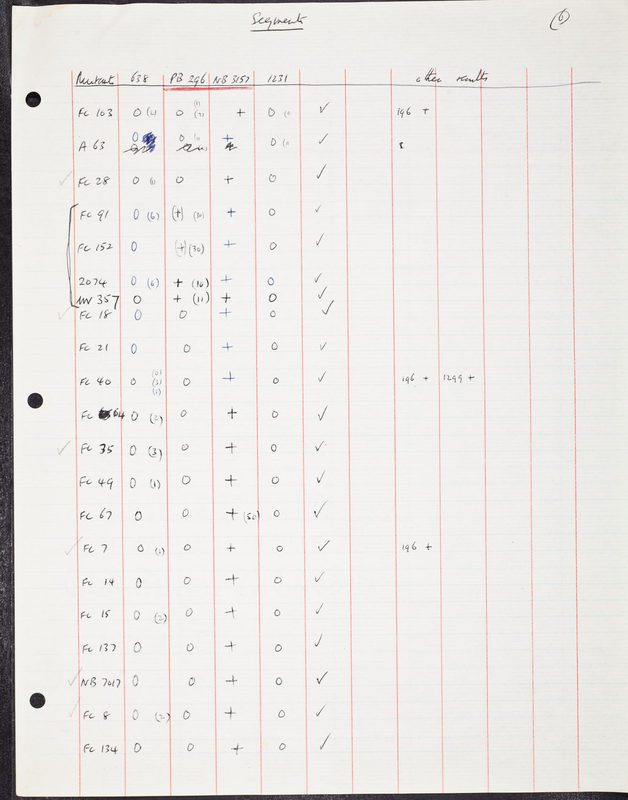 Segments
6
Mutants 638 PB 296 NB 3157 1231 other results
Fc 103 0 (2) 0 (1) (7) + 0 (1) ✓ 196 +
A 63 0 0 (1) + 0 (1) ✓
✓ Fc 28 0 (1) 0 + 0 ✓
Fc 91 0 (6) (+) (30) + 0 ✓
Fc 152 0 (+) (30) + 0 ✓
2074 0 (6) + (16) + 0 ✓
MV 357 0 + (11) + 0 ✓
✓ Fc 18 0 0 + 0 ✓
Fc 21 0 0 + 0 ✓
Fc 40 0 (0) (3) (1) 0 + 0 ✓ 196 + 1299 +
Fc 64 0 (2) 0 + 0 ✓
✓ Fc 35 0 (3) 0 + 0 ✓
Fc 49 0 (1) 0 + 0 ✓
Fc 67 0 0 + (50) 0 ✓
✓ Fc 7 0 (1) 0 + 0 ✓ 196 +
Fc 14 0 0 + 0 ✓
Fc 15 0 (2) 0 + 0 ✓
Fc 137 0 0 + 0 ✓
✓ NB 7017 0 0 + 0 ✓
✓ Fc 8 0 (2) 0 + 0 ✓
Fc 134 0 0 + 0 ✓